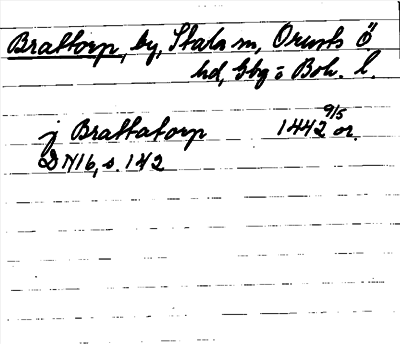 Brattorp, by, Stala sn, Orusts ö
hd, Gbg o Boh. l.
j Brattatorp 1442 9/5 or.
DN 16, s. 142